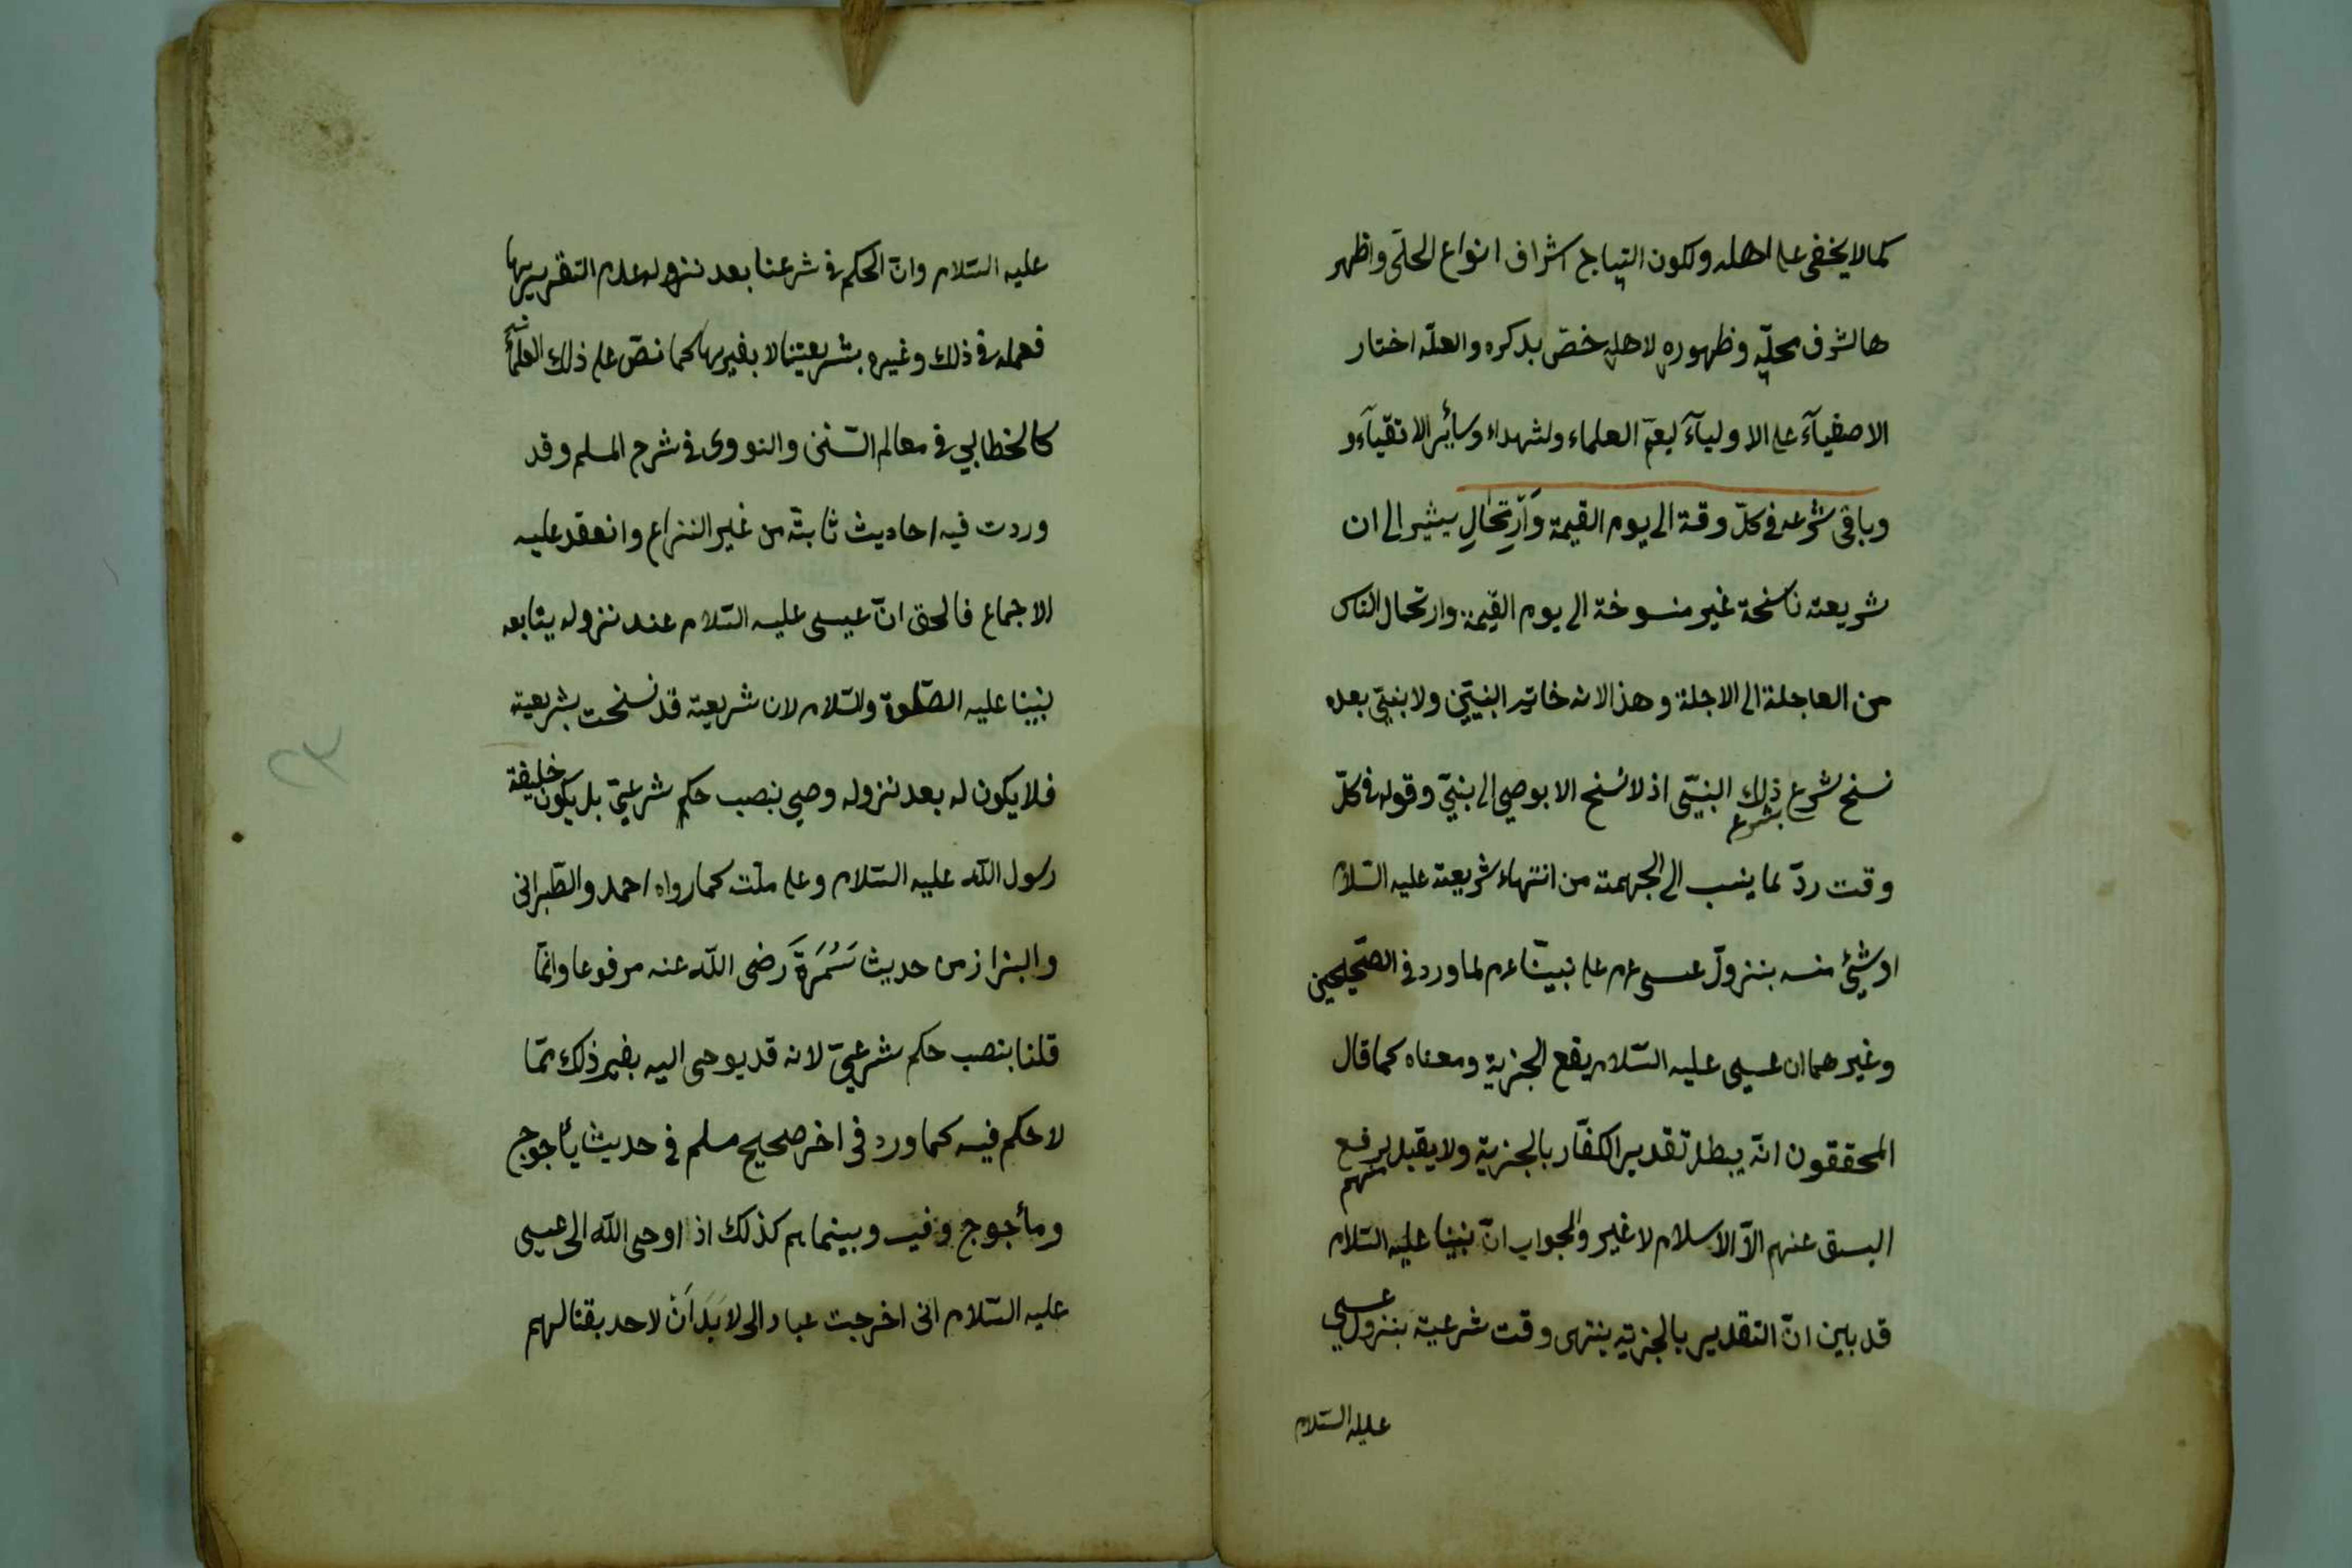 كمالا يخفى على اهله ولكون التيجاج اشراف انواع الحلّى واظهر
ها لشرف محلّه وظهوره لاهله خصّ بذكره والعلّه اختار
الاصفيآء على الاوليآء ليعمّ العلماء ولشهداء وسائر الاتقيآء و
وباقى شرعه فى كلّ وقت الى يوم القيمة وَارتحالِ يشير الى ان
شريعته ناسخة غير منسوخة الى يوم القيمة وارتحال الناس
من العاجلة الى الاجلة وهذا لانه خاتم النبيّين ولا نبىّ بعده
نسخ شرع ذلك النبىّ اذ لا نسخ الا بوصى الى نبىّ وقوله فى كلّ
بشرع
وقت ردّ لما ينسب الى الجهمية من انتهاء شريعته عليه السّلام
او شئ منه بنزول عسى عم على نبيّنا عم لما ورد فى الصّحيحين
وغيرهما ان عيسى عليه السّلام يقع الجزية ومعناه كما قال
المحققون انّه يبطل تقدير الكفّار بالجزية ولا يقبل لرفع
منهم
السبق عنهم الاّ الاسلام لا غير والجواب انّ نبينا عليه السّلام
قد بين انّ التقدير بالجزيه ينتهى وقت شرعية بنزول عيسى
عليه السّلام
عليه السّلام وانّ الحكم فى شرعنا بعد نزوله عدم التقرير بها
فعمله فى ذلك وغيره بشريعتنا لا بغيرها كما نصّ على ذلك العلمآء
كالخطابي فى معالم السّنن والنووى فى شرح المسلم وقد
وردت فيه احاديث ثابتة من غير النزاع وانعقد عليه
الاجماع فالحق انّ عيسى عليه السّلام عند نزوله يتابعه
نبينا عليه الصّلوة والسّلام لان شريعته قد نسخت بشريعته
فلا يكون له بعد نزوله وصي بنصب حكم شرعىّ بل يكون خليفة
رسول اللّه عليه السّلام وعلى ملّته كما رواه احمد والطّبرانى
والبزاز من حديث سَمُرَةَ رضى اللّه عنه مرفوعا وانمّا
قلنا بنصب حكم شرعىّ لانه قد يوحى اليه بغير ذلك ممّا
لا حكم فيه كما ورد فى اخر صحيح مسلم فى حديث يأجوج
ومأجوج وفيه وبينما هم كذلك اذ اوحى اللّه الى عيسى
عليه السّلام انى اخرجت عبادا لى لا يَدَانْ لاحد بقتالهم